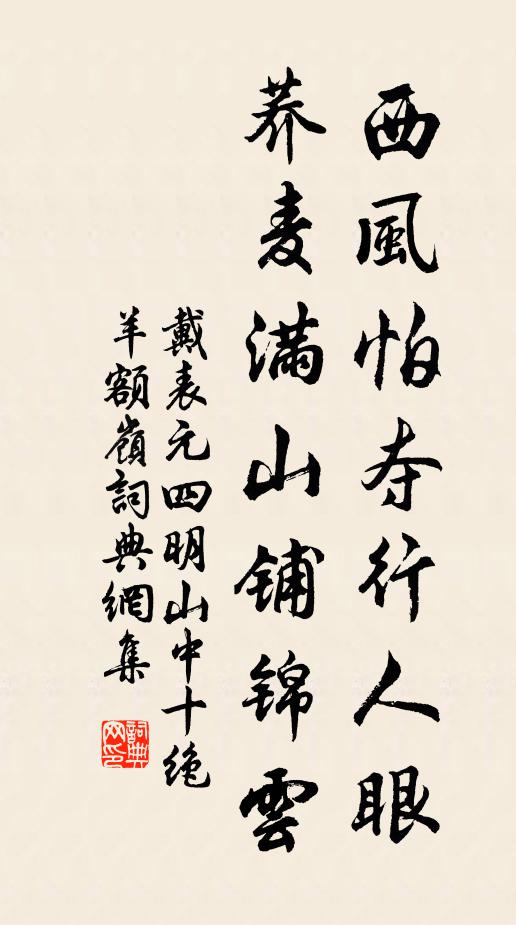 西風怕夺行人眼
荞麦满山铺锦雲
戴表元四明山中十绝
羊额嶺詞典網集
詞典网印